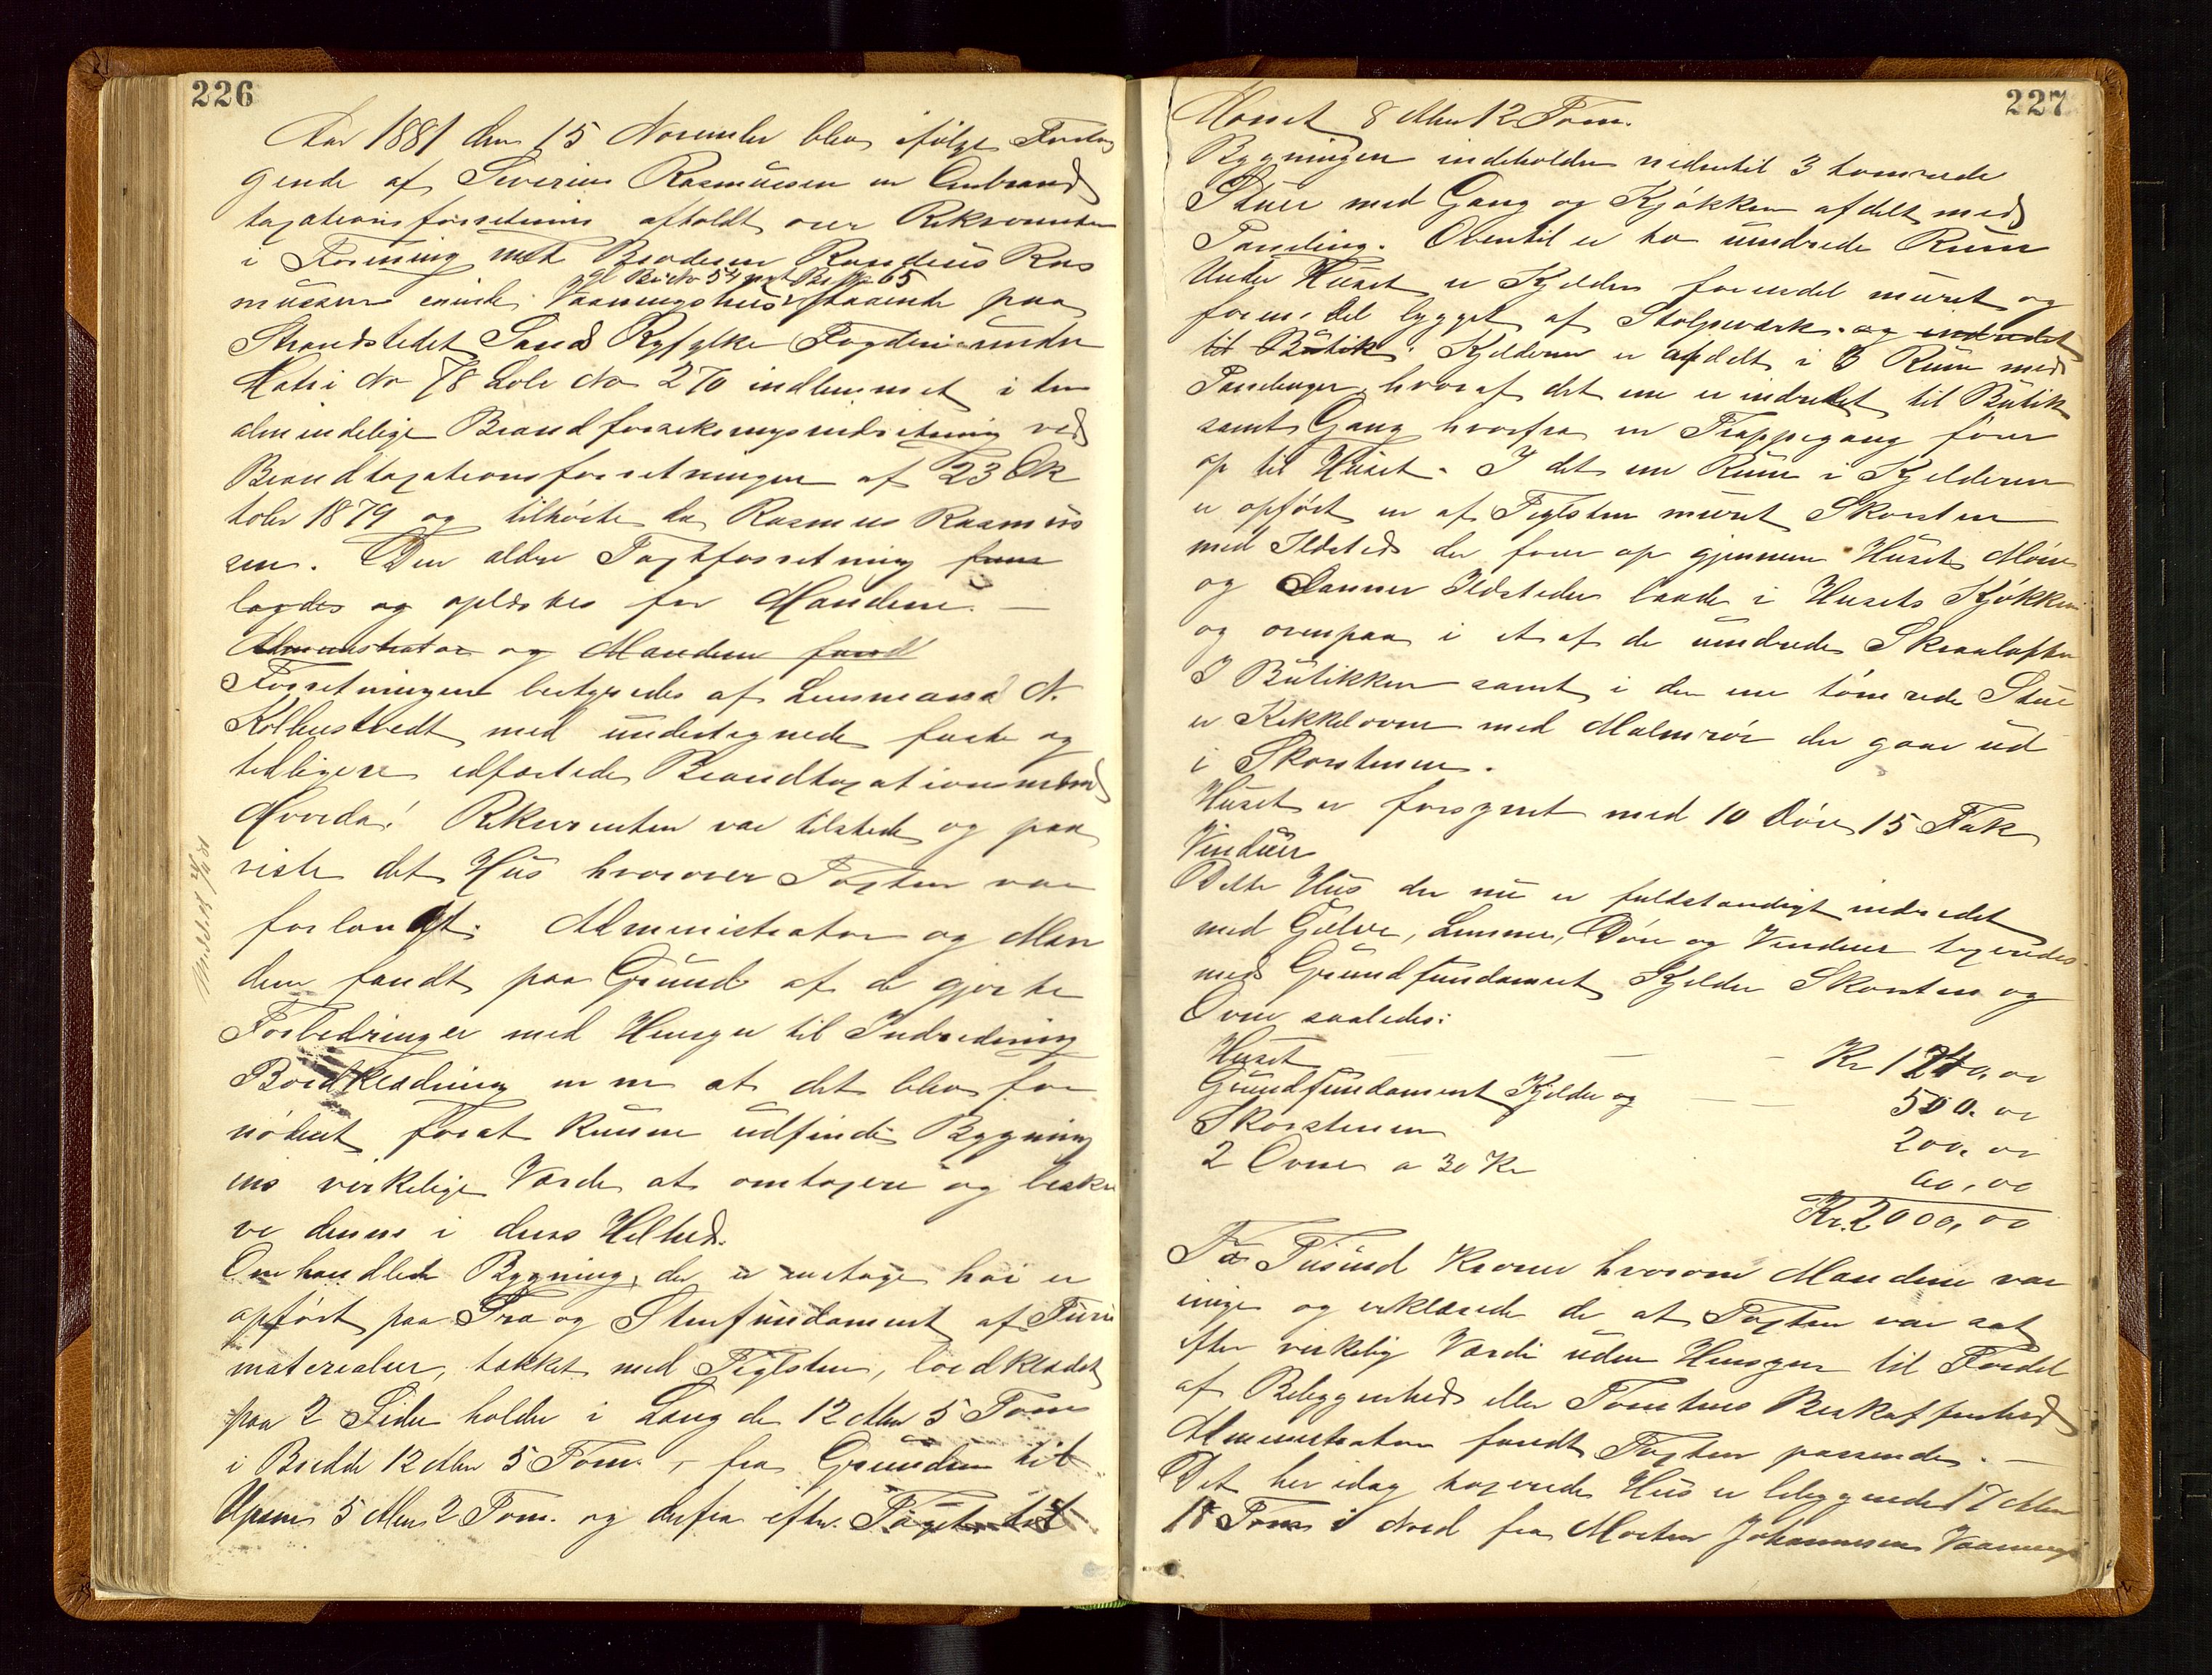 226
Aar 1881 den 15 November blev ifølge Forlan
gende af Severin Rasmussen en Ombrand
taxationsforretning afholdt over Rekvirenten
i Forening med Broderen Rasmus Ras
gl Br No 54 nyt Br No 65
mussens eiende Vaaningshus staaende paa
Strandstedet Sand Ryfylke Fogderi under
Matr No 78 Løbe No 270 indlemmet i den
almindelige Brandforsikringsindretning ved
Brandtaxationsforretningen af 23 Ok
tober 1879 og tilhørte da Rasmus Rasmus
sen. Den ældre Taxtforretning frem
lagdes og oplæstes for Mændene. —
Administrator og Mændene fandt
Forretningen bestyredes af Lensmand N.
Kolbenstvedt med undertegnede faste og
tidligere edfæstede Brandtaxationsmænd
Hvorda! Rekvirenten var tilstede og paa
viste det Hus hvorover Taxten var
forlangt. Administrator og Mæn
dene fandt paa Grund af de gjorte
Forbedringer med Hensyn til Indredning
Bordklædning m m at det blev for
nødent forat kunne udfinde Bygning
ens virkelige Værde at omtaxere og beskri
ve denne i dens Helhed.
Omhandlede Bygning, der er en etage høi er
opført paa Træ og Stenfundament af Furu
materialier, tækket med Teglsten, bordklædet
paa 2 Sider holder i Længde 12 Alen 5 Tom
i Bredde 12 Alen 5 Tom. - fra Grunden til
Upsen 5 Alen 2 Tom. og derfra efter Taget til
Meldt
227
Mønet 8 Alen 12 Tom.
Bygningen indeholder nedentil 3 tømrede
Stuer med Gang og Kjøkken afdelt med
Paneling. Oventil er to indrede Rum
Under Huset er Kjelder forendel muret og
forendel bygget af Stolpeværk og indredet
til Butik. Kjelderen er afdelt i 3 Rum med
Panelinger, hvoraf det ene er indredet til Butik
samt Gang hvorfra en Trappegang fører
op til Huset. I det ene Rum i Kjelderen
er opført en af Teglsten muret Skorsten
med Ildsted der fører op gjennem Husets Møne
og danner Ildsteder baade i Husets Kjøkken
og ovenpaa i et af de indrede Skraalofter
I Butikken samt i den ene tømrede Stue
er Kakkelovne med Malmrør der gaar ud
i Skorstenen.
Huset er forsynet med 10 Døre 15 Fak
Vinduer
Dette Hus der nu er fuldstændigt indredet
med Gulve, Lemmer, Døre og Vinduer taxeredes
med Grundfundament Kjelder Skorsten og
Ovne saaledes:
Huset — — — Kr 1240,00
Grundfundament Kjelder og — — 500.00
Skorstenen 200,00
2 Ovne a 30 Kr 60,00
Kr. 2000,00
To Tusind Kroner hvorom Mændene var
enige og erklærede de at Taxten var sat
efter virkelig Værdi uden Hensyn til Fordel
af Beliggenhed eller Tomtens Beskaffenhed
Administrator fandt Taxten passende. —
Det her idag taxerede Hus er beliggende 17 Alen
18 Tom i Nord fra Morten Johannesens Vaanings